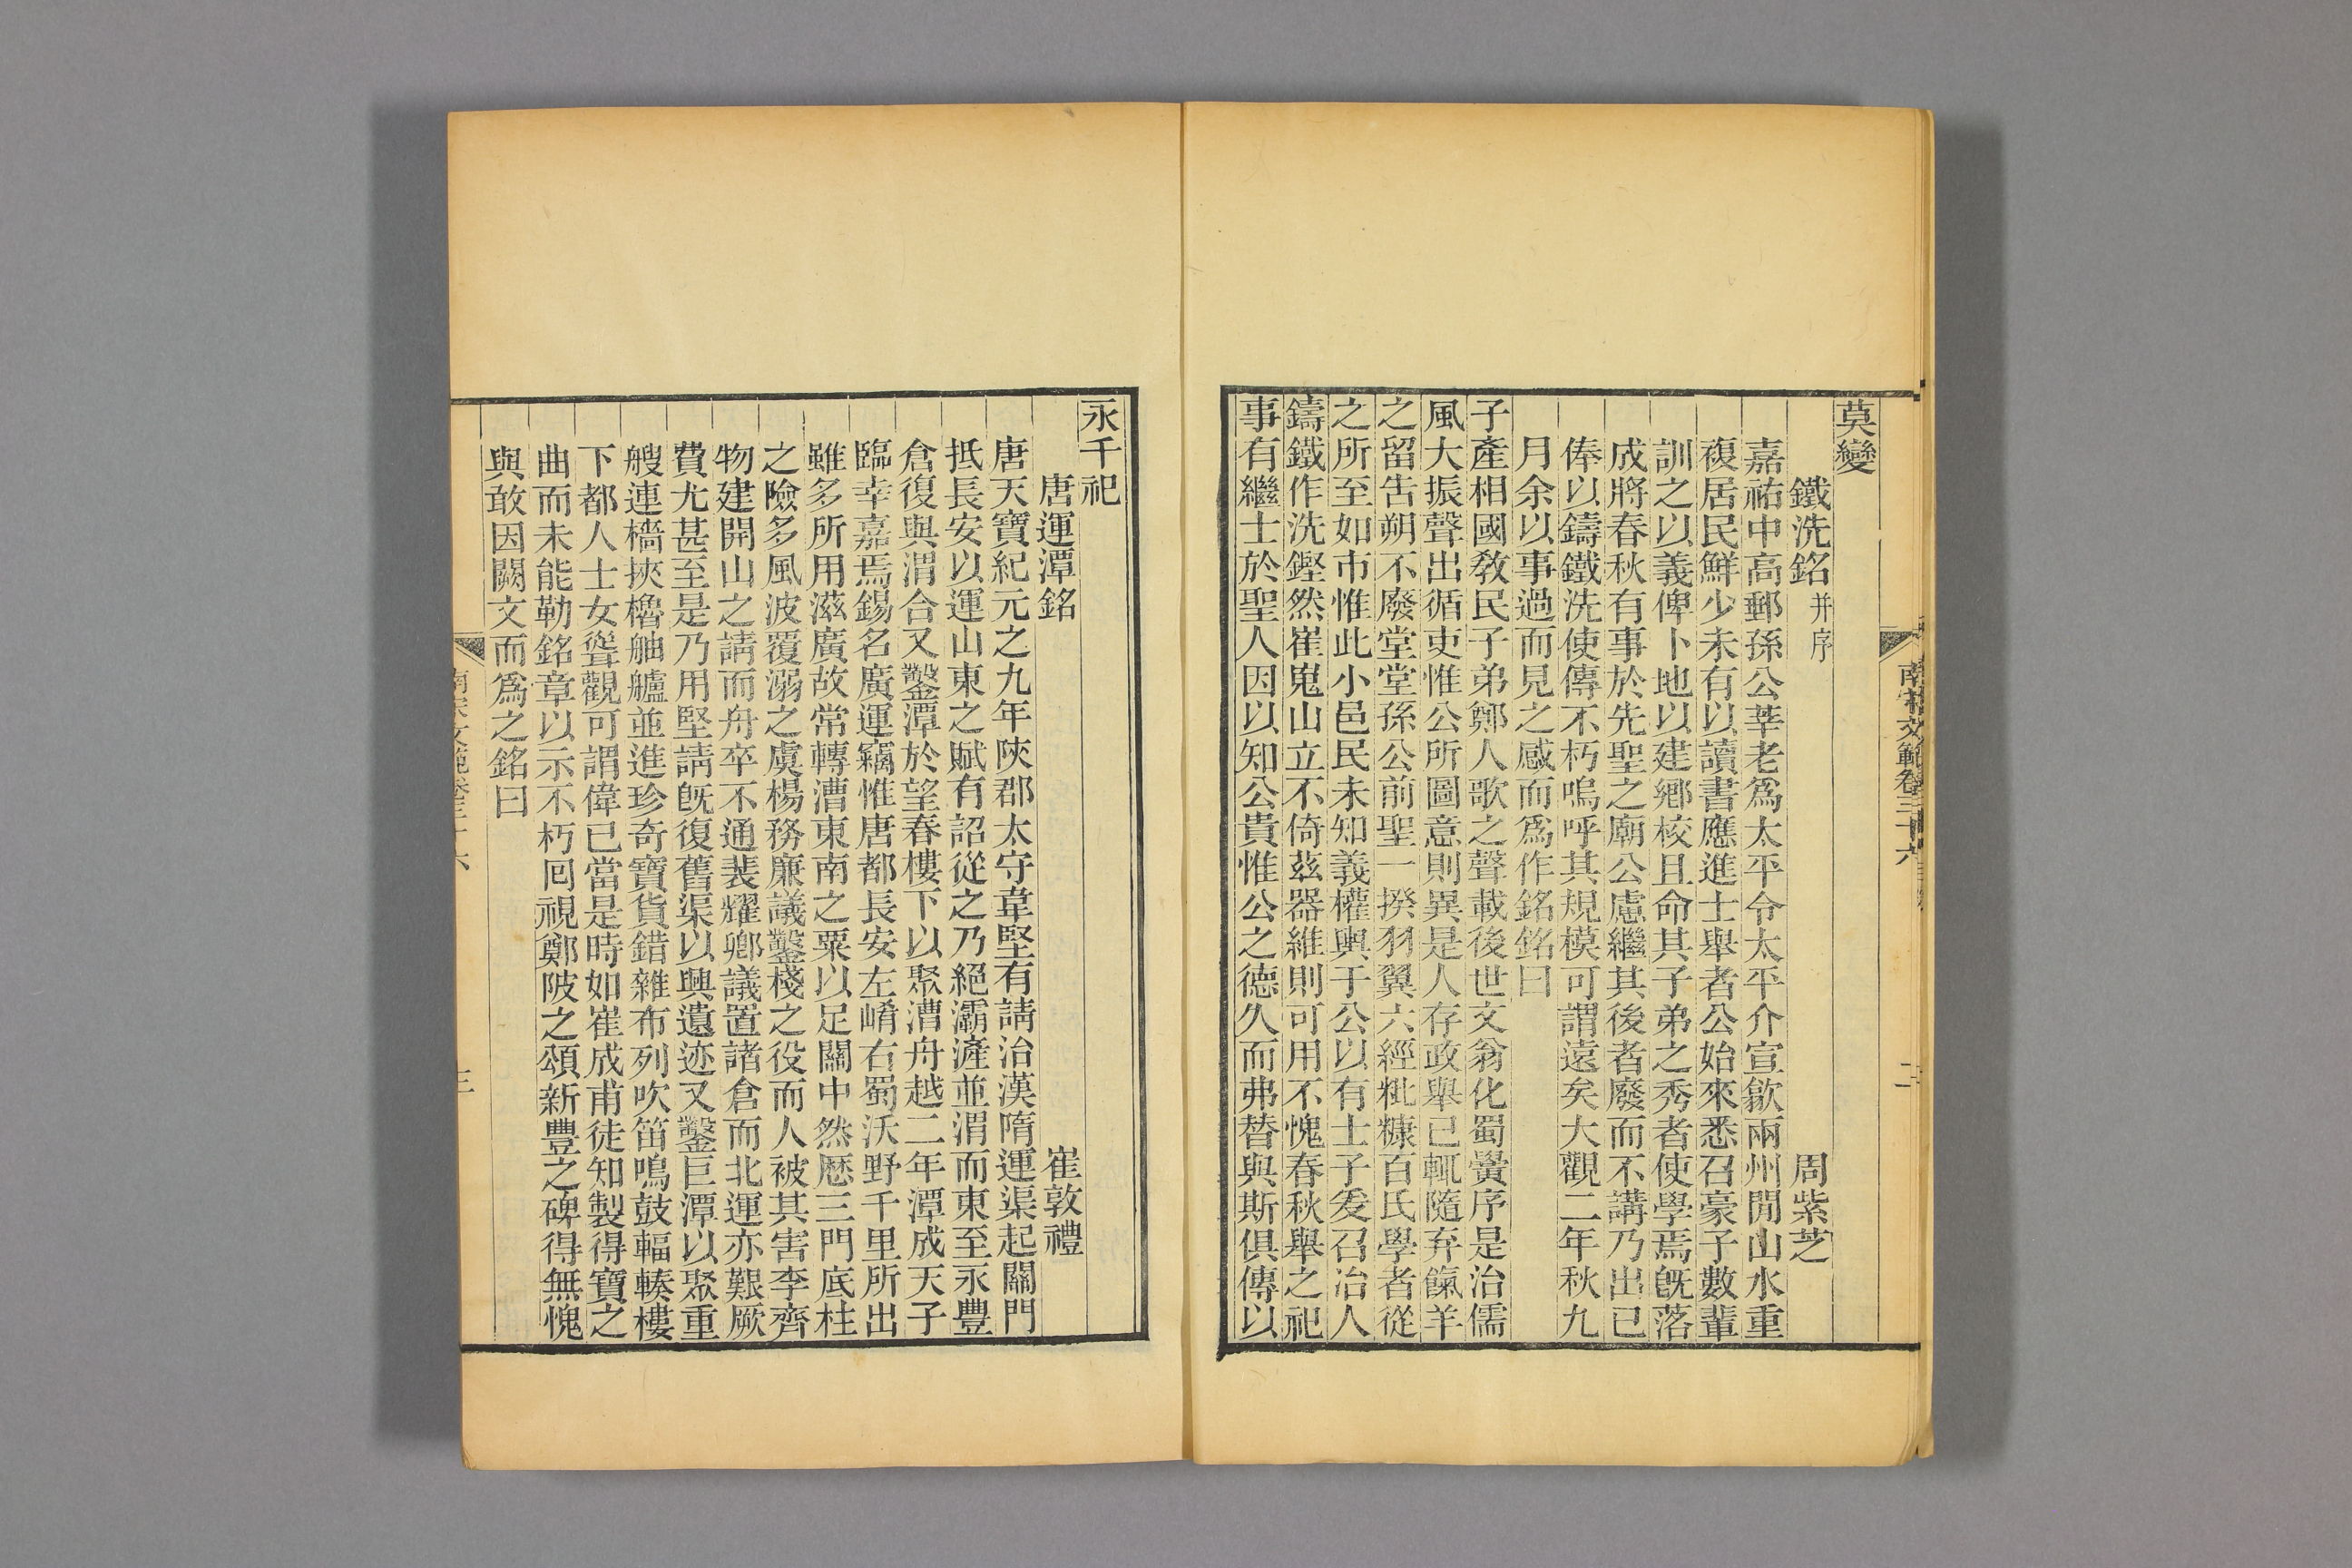 莫變
鐵洗銘并序 周紫芝
嘉祐中高郵孫公莘老爲太平令太平介宣歙兩州閒山水重
複居民鮮少未有以讀書應進士舉者公始來悉召豪子數輩
訓之以義俾卜地以建鄉校且命其子弟之秀者使學焉旣落
成將春秋有事於先聖之廟公慮繼其後者廢而不講乃出已
俸以鑄鐵洗使傳不朽嗚呼其規模可謂遠矣大觀二年秋九
月余以事過而見之感而爲作銘銘曰
子產相國敎民子弟鄭人歌之聲載後世文翁化蜀黌序是治儒
風大振聲出循吏惟公所圖意則異是人存政舉已輒隨弃餼羊
之留告朔不廢堂堂孫公前聖一揆羽翼六經秕糠百氏學者從
之所至如市惟此小邑民未知義權輿于公以有士子爰召冶人
鑄鐵作洗鏗然崔嵬山立不倚茲器維則可用不愧春秋舉之祀
事有繼士於聖人因以知公貴惟公之德久而弗替與斯俱傳以
南宋文範卷三十六 二
永千祀
唐運潭銘 崔敦禮
唐天寶紀元之九年陝郡太守韋堅有請治漢隋運渠起關門
抵長安以運山東之賦有詔從之乃絕灞滻並渭而東至永豐
倉復與渭合又鑿潭於望春樓下以聚漕舟越二年潭成天子
臨幸嘉焉錫名廣運竊惟唐都長安左崤右蜀沃野千里所出
雖多所用滋廣故常轉漕東南之粟以足關中然厯三門底柱
之險多風波覆溺之虞楊務廉議鑿棧之役而人被其害李齊
物建開山之請而舟卒不通裴耀卿議置諸倉而北運亦艱厥
費尤甚至是乃用堅請旣復舊渠以興遺迹又鑿巨潭以聚重
艘連檣挾櫓舳艫並進珍奇寶貨錯雜布列吹笛鳴鼓輻輳樓
下都人士女聳觀可謂偉已當是時如崔成甫徒知製得寶之
曲而未能勒銘章以示不朽回視鄭陂之頌新豐之碑得無愧
與敢因闕文而爲之銘曰
南宋文範卷三十六 三